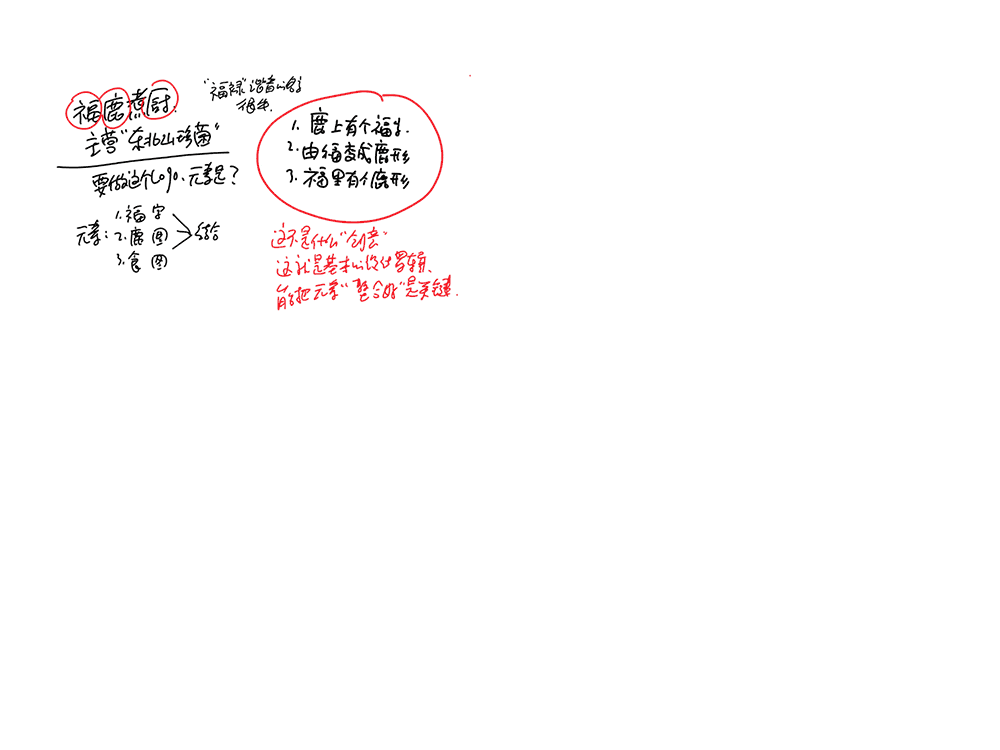 福鹿煮厨.
"福禄"谐音
很生
主营"东北山珍菌"
要做这个logo、元素是?
元素:
1.福 字
2.鹿 图
3.食 图
结合
1. 鹿上有个福字.
2.由福变成鹿形
3. 福里有个鹿形
这不是什么"创意"
这就是基本的设计逻辑、
能把元素"整合好"是关键.